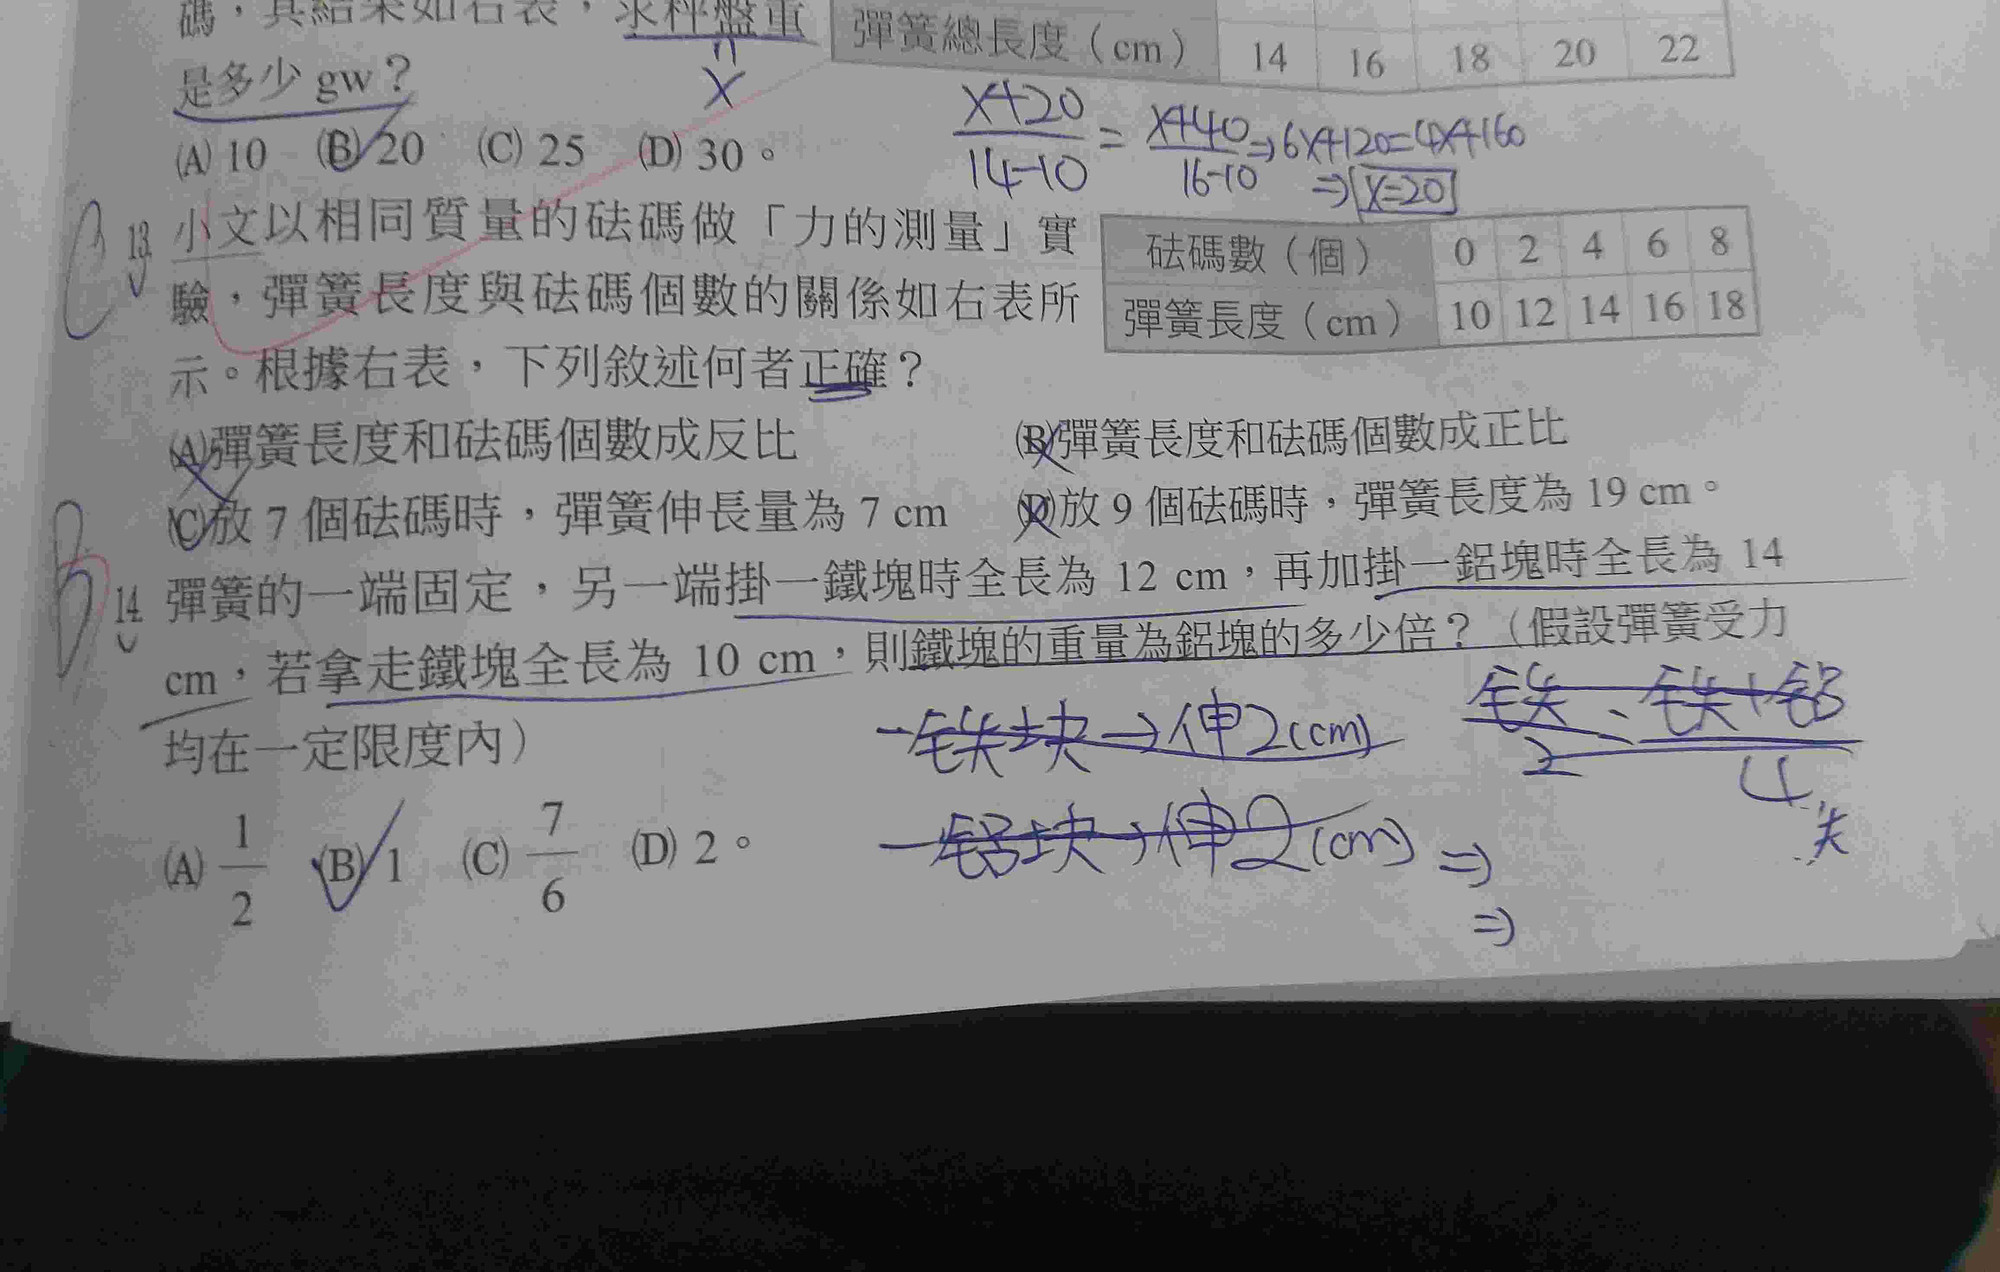 碼，其結果如右表，求秤盤重
是多少 gw？
X
彈簧總長度（cm） 14 16 18 20 22
(A) 10 (B) 20 (C) 25 (D) 30。
X+20/14-10 = X+40/16-10 ⇒ 6X+120=4X+160
⇒ X=20
C
13. 小文以相同質量的砝碼做「力的測量」實
驗，彈簧長度與砝碼個數的關係如右表所
示。根據右表，下列敘述何者正確？
砝碼數（個） 0 2 4 6 8
彈簧長度（cm） 10 12 14 16 18
(A)彈簧長度和砝碼個數成反比 (B)彈簧長度和砝碼個數成正比
(C)放 7 個砝碼時，彈簧伸長量為 7 cm (D)放 9 個砝碼時，彈簧長度為 19 cm。
B
14. 彈簧的一端固定，另一端掛一鐵塊時全長為 12 cm，再加掛一鋁塊時全長為 14
cm，若拿走鐵塊全長為 10 cm，則鐵塊的重量為鋁塊的多少倍？（假設彈簧受力
均在一定限度內）
一铁块→伸2(cm)
铁/2 = 铁+铝/4
一铝块→伸2(cm) ⇒
⇒
(A) 1/2 (B) 1 (C) 7/6 (D) 2。